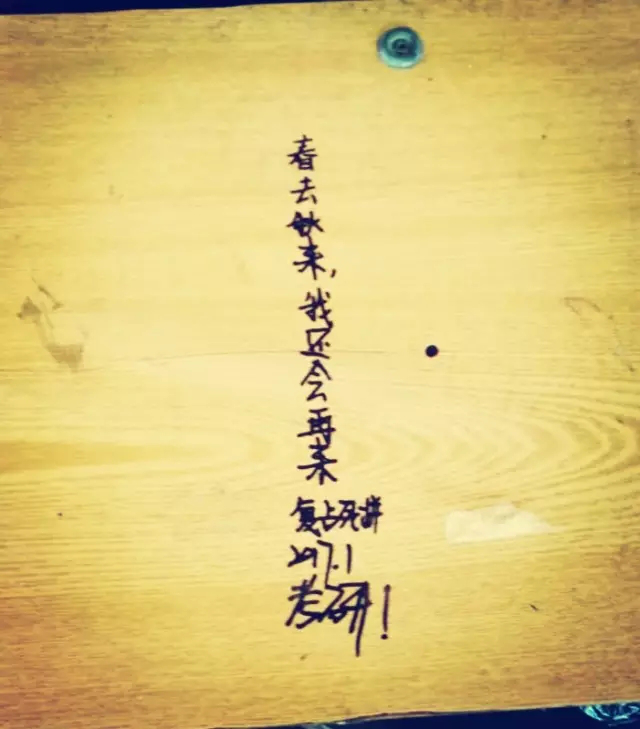 春去秋来,我还会再来
复占死拼
2017.1
考研!